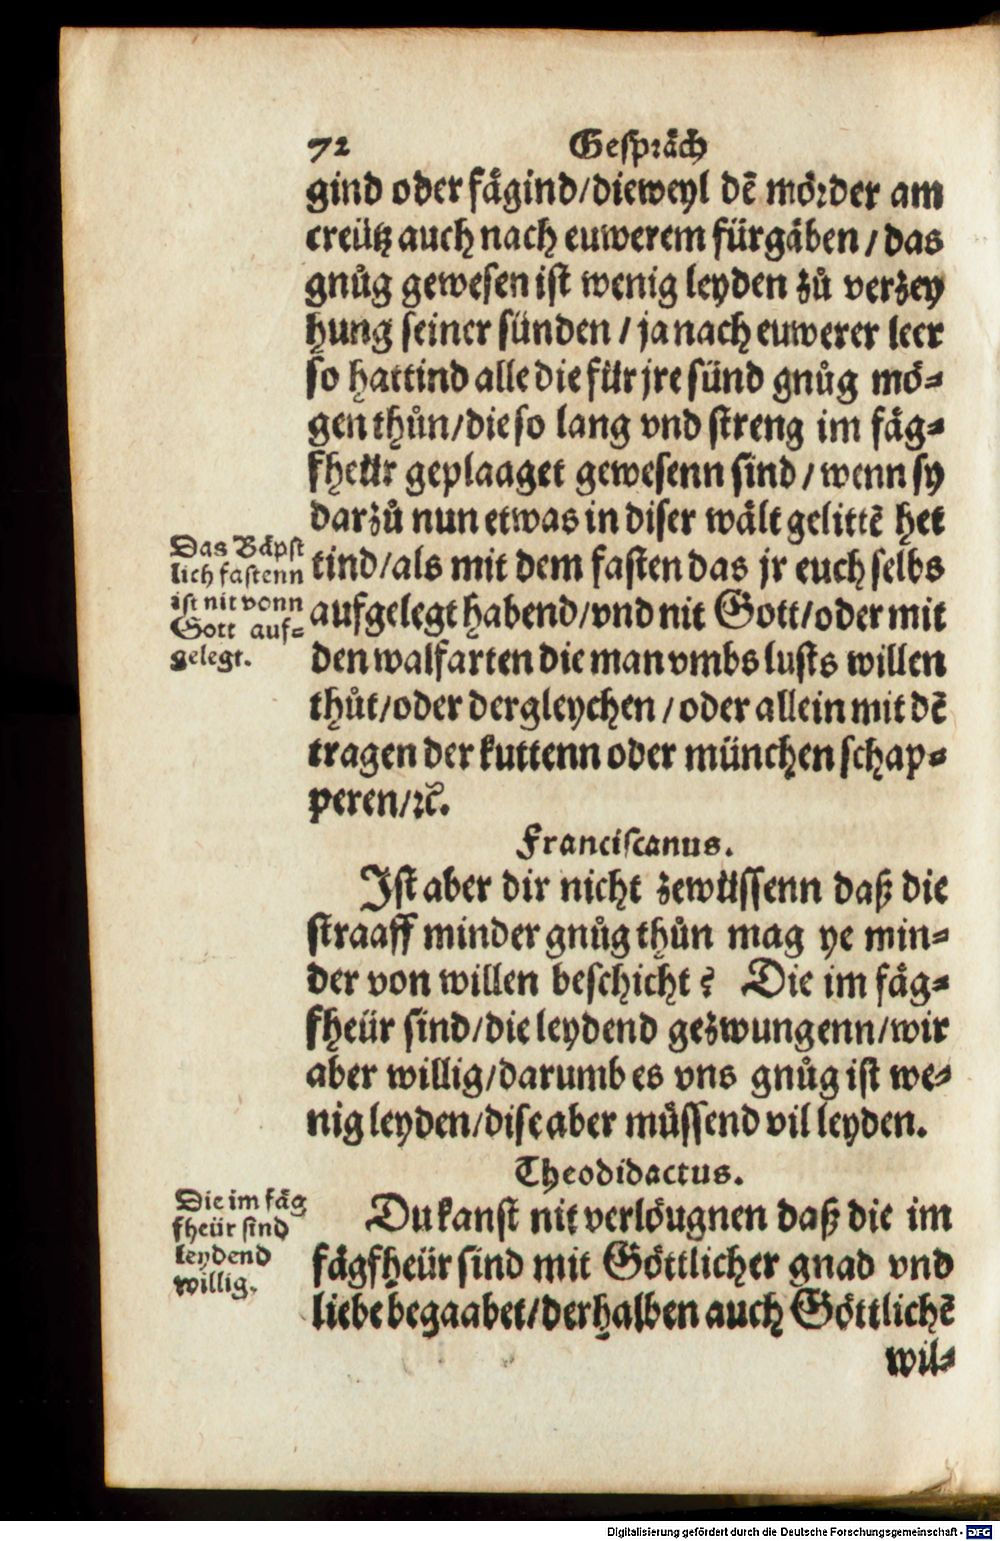 72 Gespräch
gind oder fägind/dieweyl dē mörder am
creütz auch nach euwerem fürgäben/das
gnůg gewesen ist wenig leyden zů verzey
hung seiner sünden/ja nach euwerer leer
so hattind alle die für jre sünd gnůg mö⸗
gen thůn/die so lang vnd streng im fäg⸗
fheür geplaaget gewesenn sind/wenn sy
darzů nun etwas in diser wält gelittē het
tind/als mit dem fasten das jr euch selbs
aufgelegt habend/vnd nit Gott/oder mit
den walfarten die man vmbs lusts willen
thůt/oder dergleychen/oder allein mit dē
tragen der kuttenn oder münchen schap⸗
peren/ꝛc.
Das Bäpst
lich fastenn
ist nit vonn
Gott auf⸗
gelegt.
Franciscanus.
Ist aber dir nicht zewüssenn daß die
straaff minder gnůg thůn mag ye min⸗
der von willen beschicht? Die im fäg⸗
fheür sind/die leydend gezwungenn/wir
aber willig/darumb es vns gnůg ist we⸗
nig leyden/dise aber müssend vil leyden.
Theodidactus.
Die im fäg
fheür sind
leydend
willig.
Du kanst nit verlöugnen daß die im
fägfheür sind mit Göttlicher gnad vnd
liebe begaabet/derhalben auch Göttlichē
wil⸗
Digitalisierung gefördert durch die Deutsche Forschungsgemeinschaft - DFG